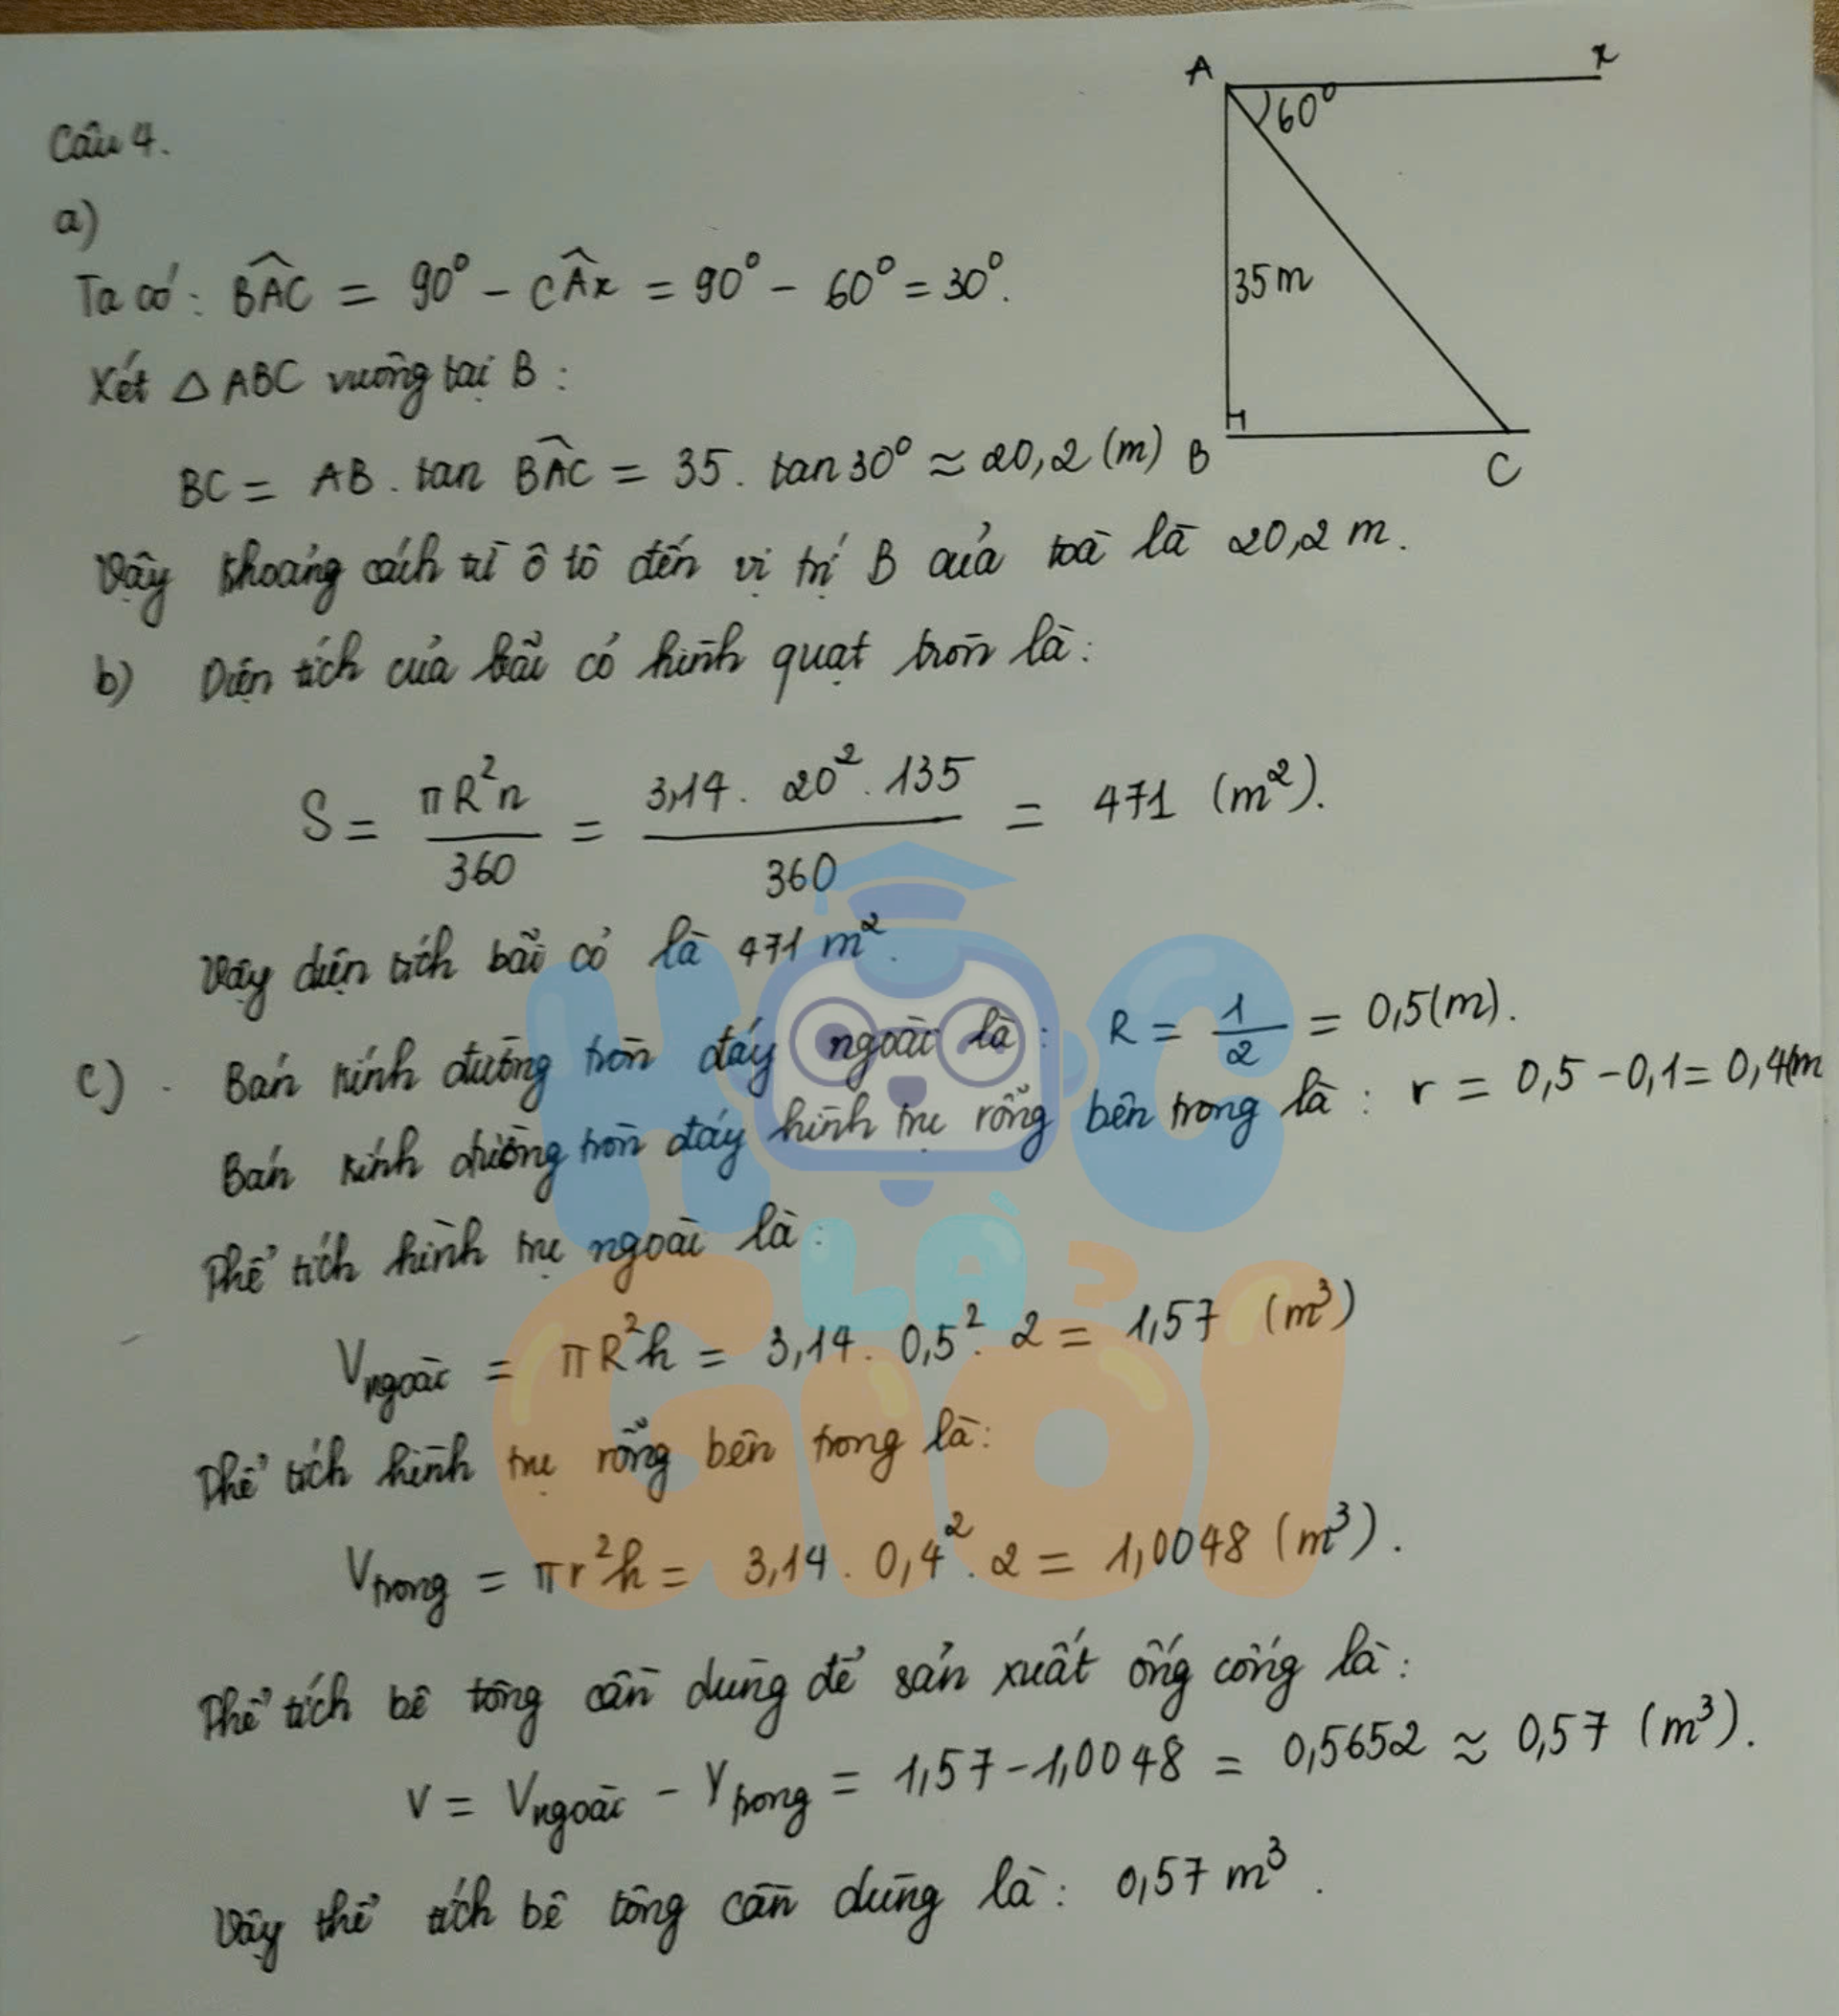 Câu 4.
a)
Ta có: BÂC = 90° - CÂx = 90° - 60° = 30°.
Xét △ ABC vuông tại B:
BC = AB . tan BÂC = 35. tan 30° ≈ 20,2 (m)
Vậy khoảng cách từ ô tô đến vị trí B của toà là 20,2 m.
A
x
60°
35m
B
C
b) Diện tích của bãi cỏ hình quạt tròn là:
S = πR²n / 360 = 3,14. 20². 135 / 360 = 471 (m²).
Vậy diện tích bãi cỏ là 471 m².
c) . Bán kính đường tròn đáy ngoài là: R = 1/2 = 0,5(m).
Bán kính đường tròn đáy hình trụ rỗng bên trong là: r = 0,5 - 0,1 = 0,4(m
Thể tích hình trụ ngoài là:
Vngoài = πR²h = 3,14. 0,5². 2 = 1,57 (m³)
Thể tích hình trụ rỗng bên trong là:
Vtrong = πr²h = 3,14. 0,4². 2 = 1,0048 (m³).
Thể tích bê tông cần dùng để sản xuất ống cống là:
V = Vngoài - Vtrong = 1,57 - 1,0048 = 0,5652 ≈ 0,57 (m³).
Vậy thể tích bê tông cần dùng là: 0,57 m³.
HỌC
LÀ
GIỎI